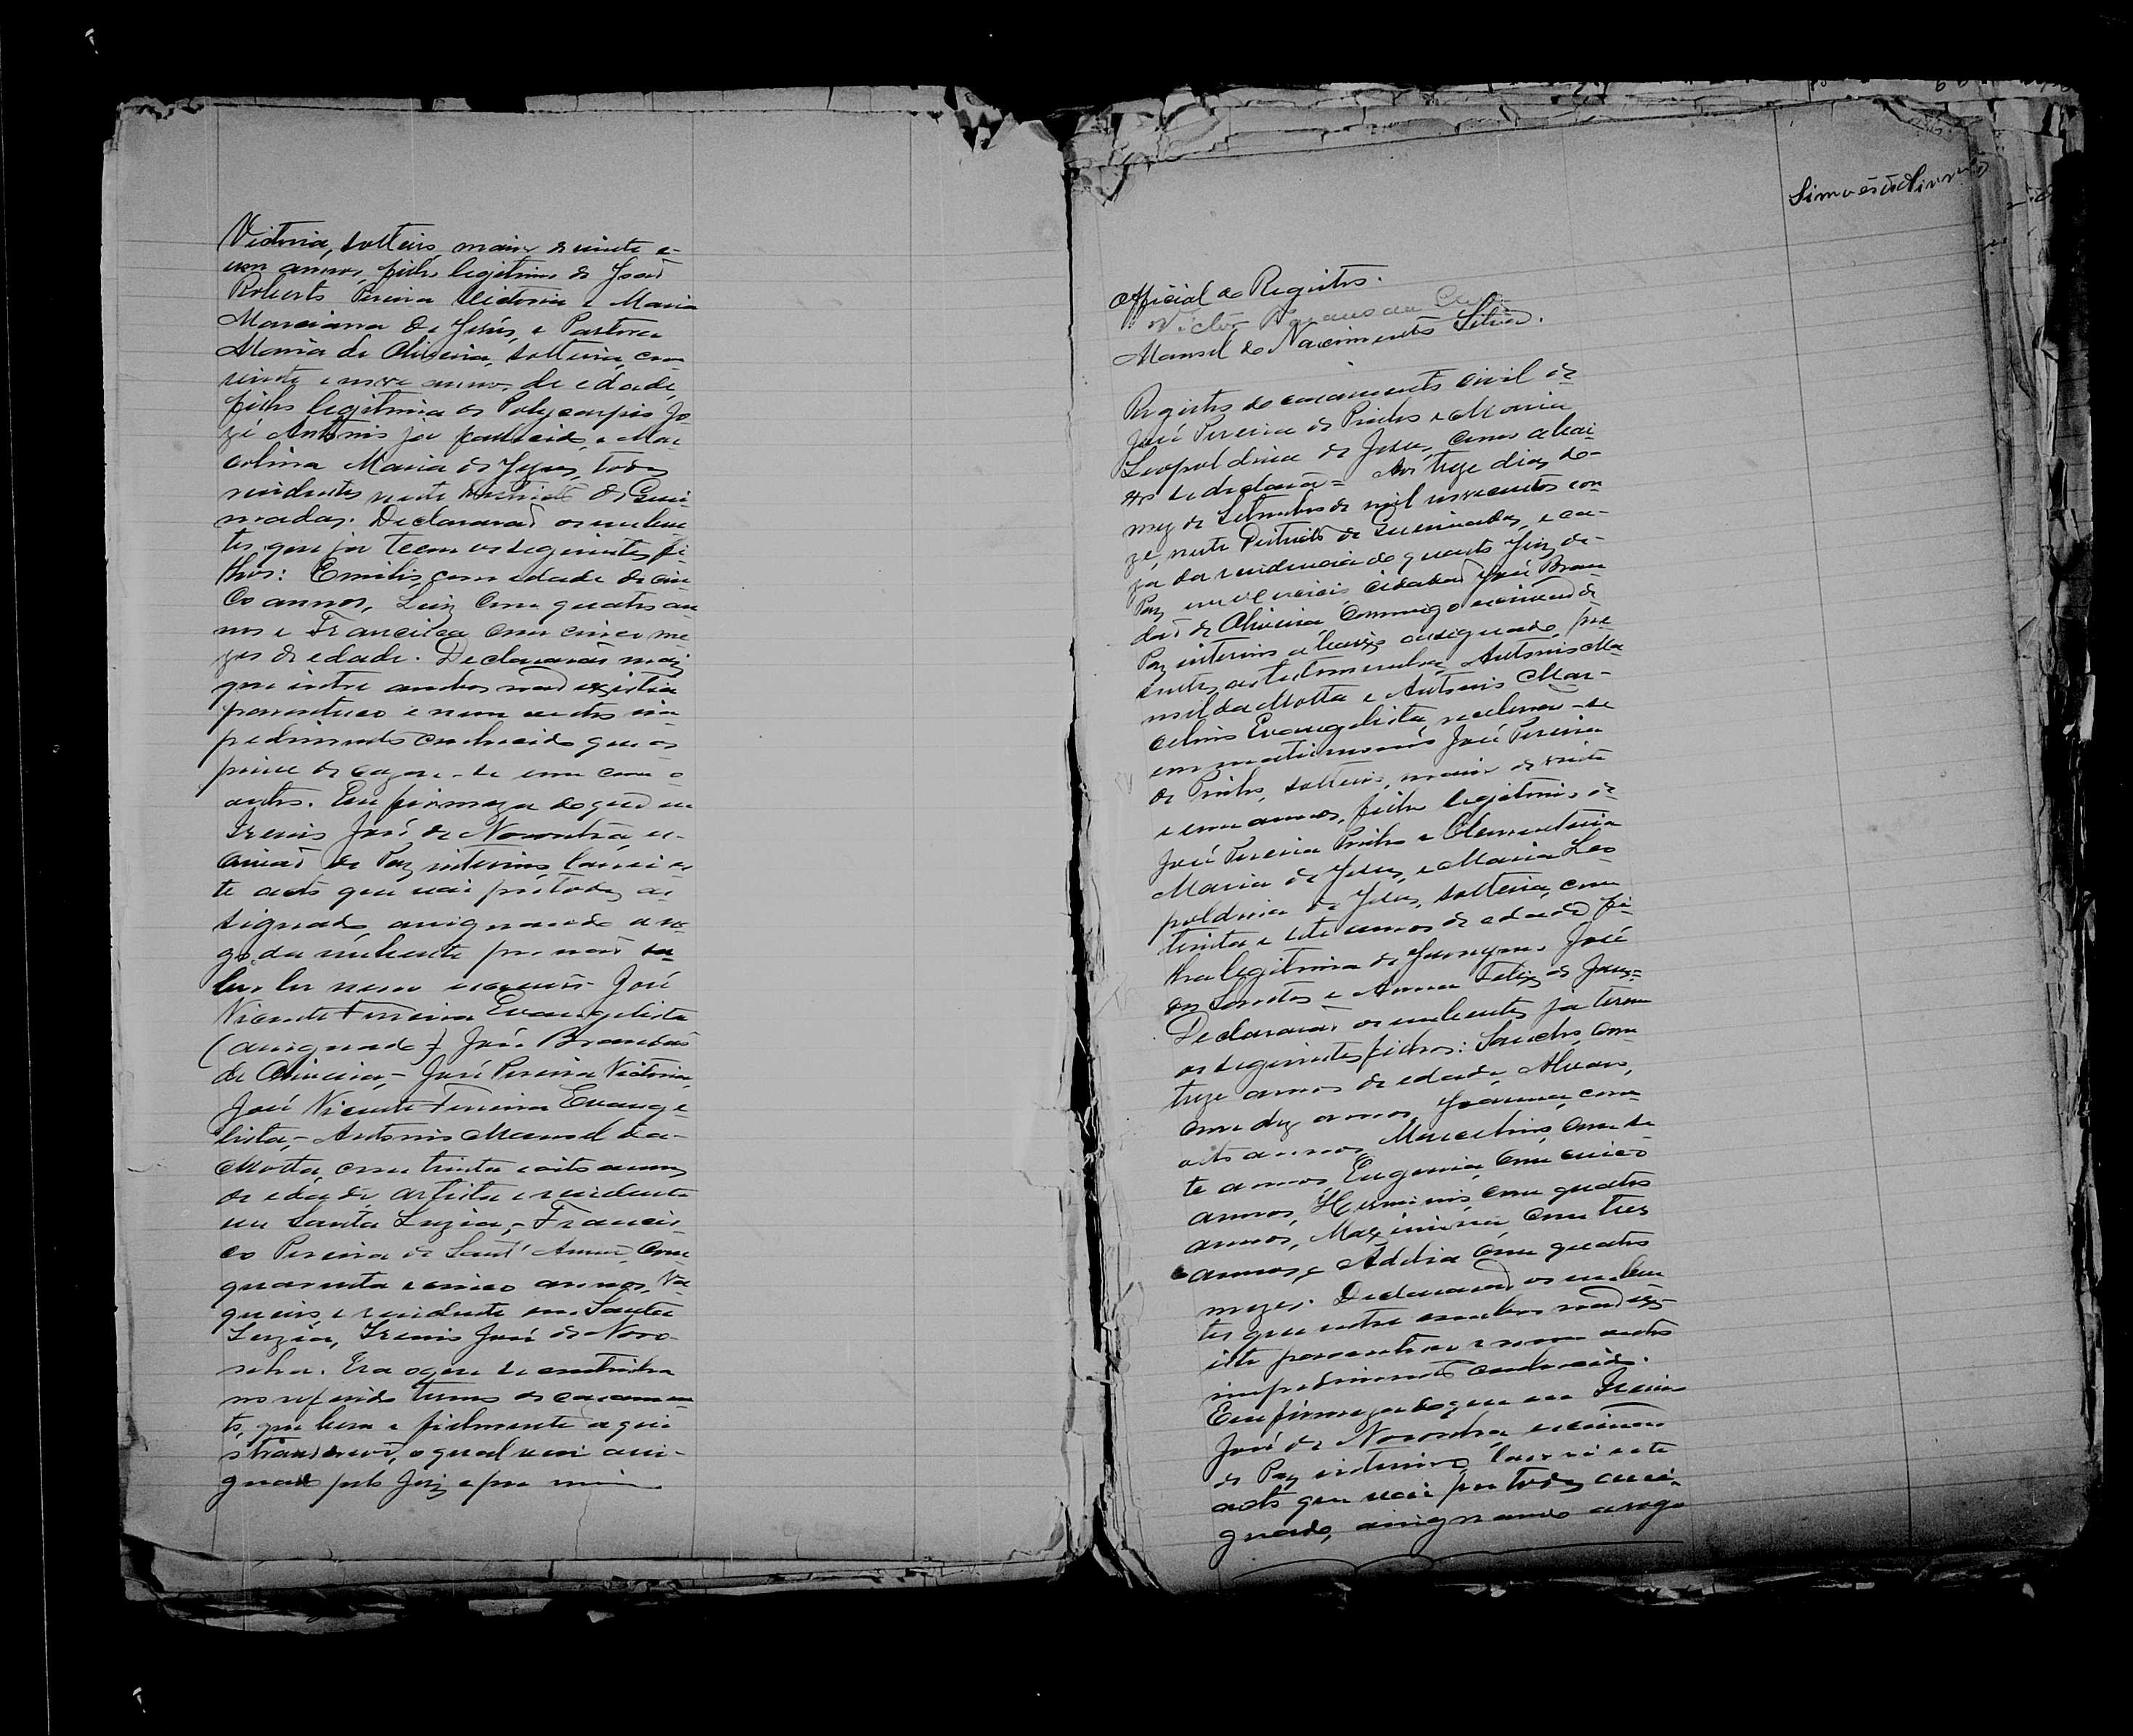 Victoria, solteiro, maior de vinte e
um annos, filho legitimo de João
Roberto Pereira Victoria e Maria
Marciana de Jesús, e Pastora
Maria de Oliveira, solteira, com
vinte e nove annos de edade,
filha legitima de Polycarpio Jo-
zé Antonio já fallecido, e Mar
colina Maria de Jesus, todos
residentes neste districto de Quei
madas. Declararaõ os nuben
tes que já teem os seguintes fi
lhos: Emilio, com edade de cin
co annos, Luiz com quatro an
nos e Francisca com cinco me
zes de edade. Declararão mais
que entre ambos naõ existia
parentesco e nem outro im
pedimento conhecido que os
prive de cazar-se um com o
outro. Em firmeza do que eu
Irenio José de Noronha es-
crivaõ de Paz interino lavrei es
te acto que vai por todos as
signado, assignando a ro
go da nubente por naõ sa
ber ler nem escrever José
Vicente Ferreira Evangelista
(assignado) José Brandaõ
de Oliveira, - José Pereira Victoria,
José Vicente Ferreira Evange
lista, - Antonio Manoel da
Motta, com trinta e oito annos
de edade, artista e residente
em Santa Luzia, - Francis
co Pereira de Sant'Anna, com
quarenta e cinco annos, Va
queiro, e residente em Santa
Luzia, Irenio José de Noro-
nha. Era o que se continha
no referido termo de casamen
to, que bem e fielmente aqui
transcrevi, o qual vai assi-
gnado pelo Juiz e por mim
Simões de Oliveira
Official do Registro.
Victor
Manoel do Nascimento Silva.
Registro do casamento civil de
José Pereira de Pinho e Maria
Leopoldina de Jesus, como abai-
xo se declara = Aos treze dias do
mez de Setembro de mil novecentos e on
ze, neste Districto de Queimadas, e ca-
za da residencia do quarto Juiz de
Paz em exercicio, cidadaõ José Bran
daõ de Oliveira commigo escrivaõ de
Paz interino abaixo assignado, pre
sentes as testemunhas, Antonio Ma
noel da Motta e Antonio Mar-
celino Evangelista, receberaõ-se
em matrimonio José Pereira
de Pinho, solteiro, maior de vinte
e um annos, filho legitimo de
José Pereira Pinho e Clementina
Maria de Jesus, e Maria Leo
poldina de Jesus, solteira, com
trinta e sete annos de edade fi-
lha legitima de José
dos Santos e Anna Felix de Jesus =
Declararaõ os nubentes já terem
os seguintes filhos: Sancho, com
treze annos de edade, Alvaro,
com dez annos, Joanna, com
oito annos, Marcelino, com se
te annos, Eugenia, com cinco
annos, Herminio, com quatro
annos, Maximina com tres
annos, e Adelia com quatro
mezes. Declararaõ os nuben
tes que entre ambos naõ ex-
iste parentesco e nem outro
impedimento conhecido.
Em firmeza do que eu Irenio
José de Noronha escrivaõ
de Paz interino, lavrei este
acto que vai por todos assi-
gnado, assignando a rogo